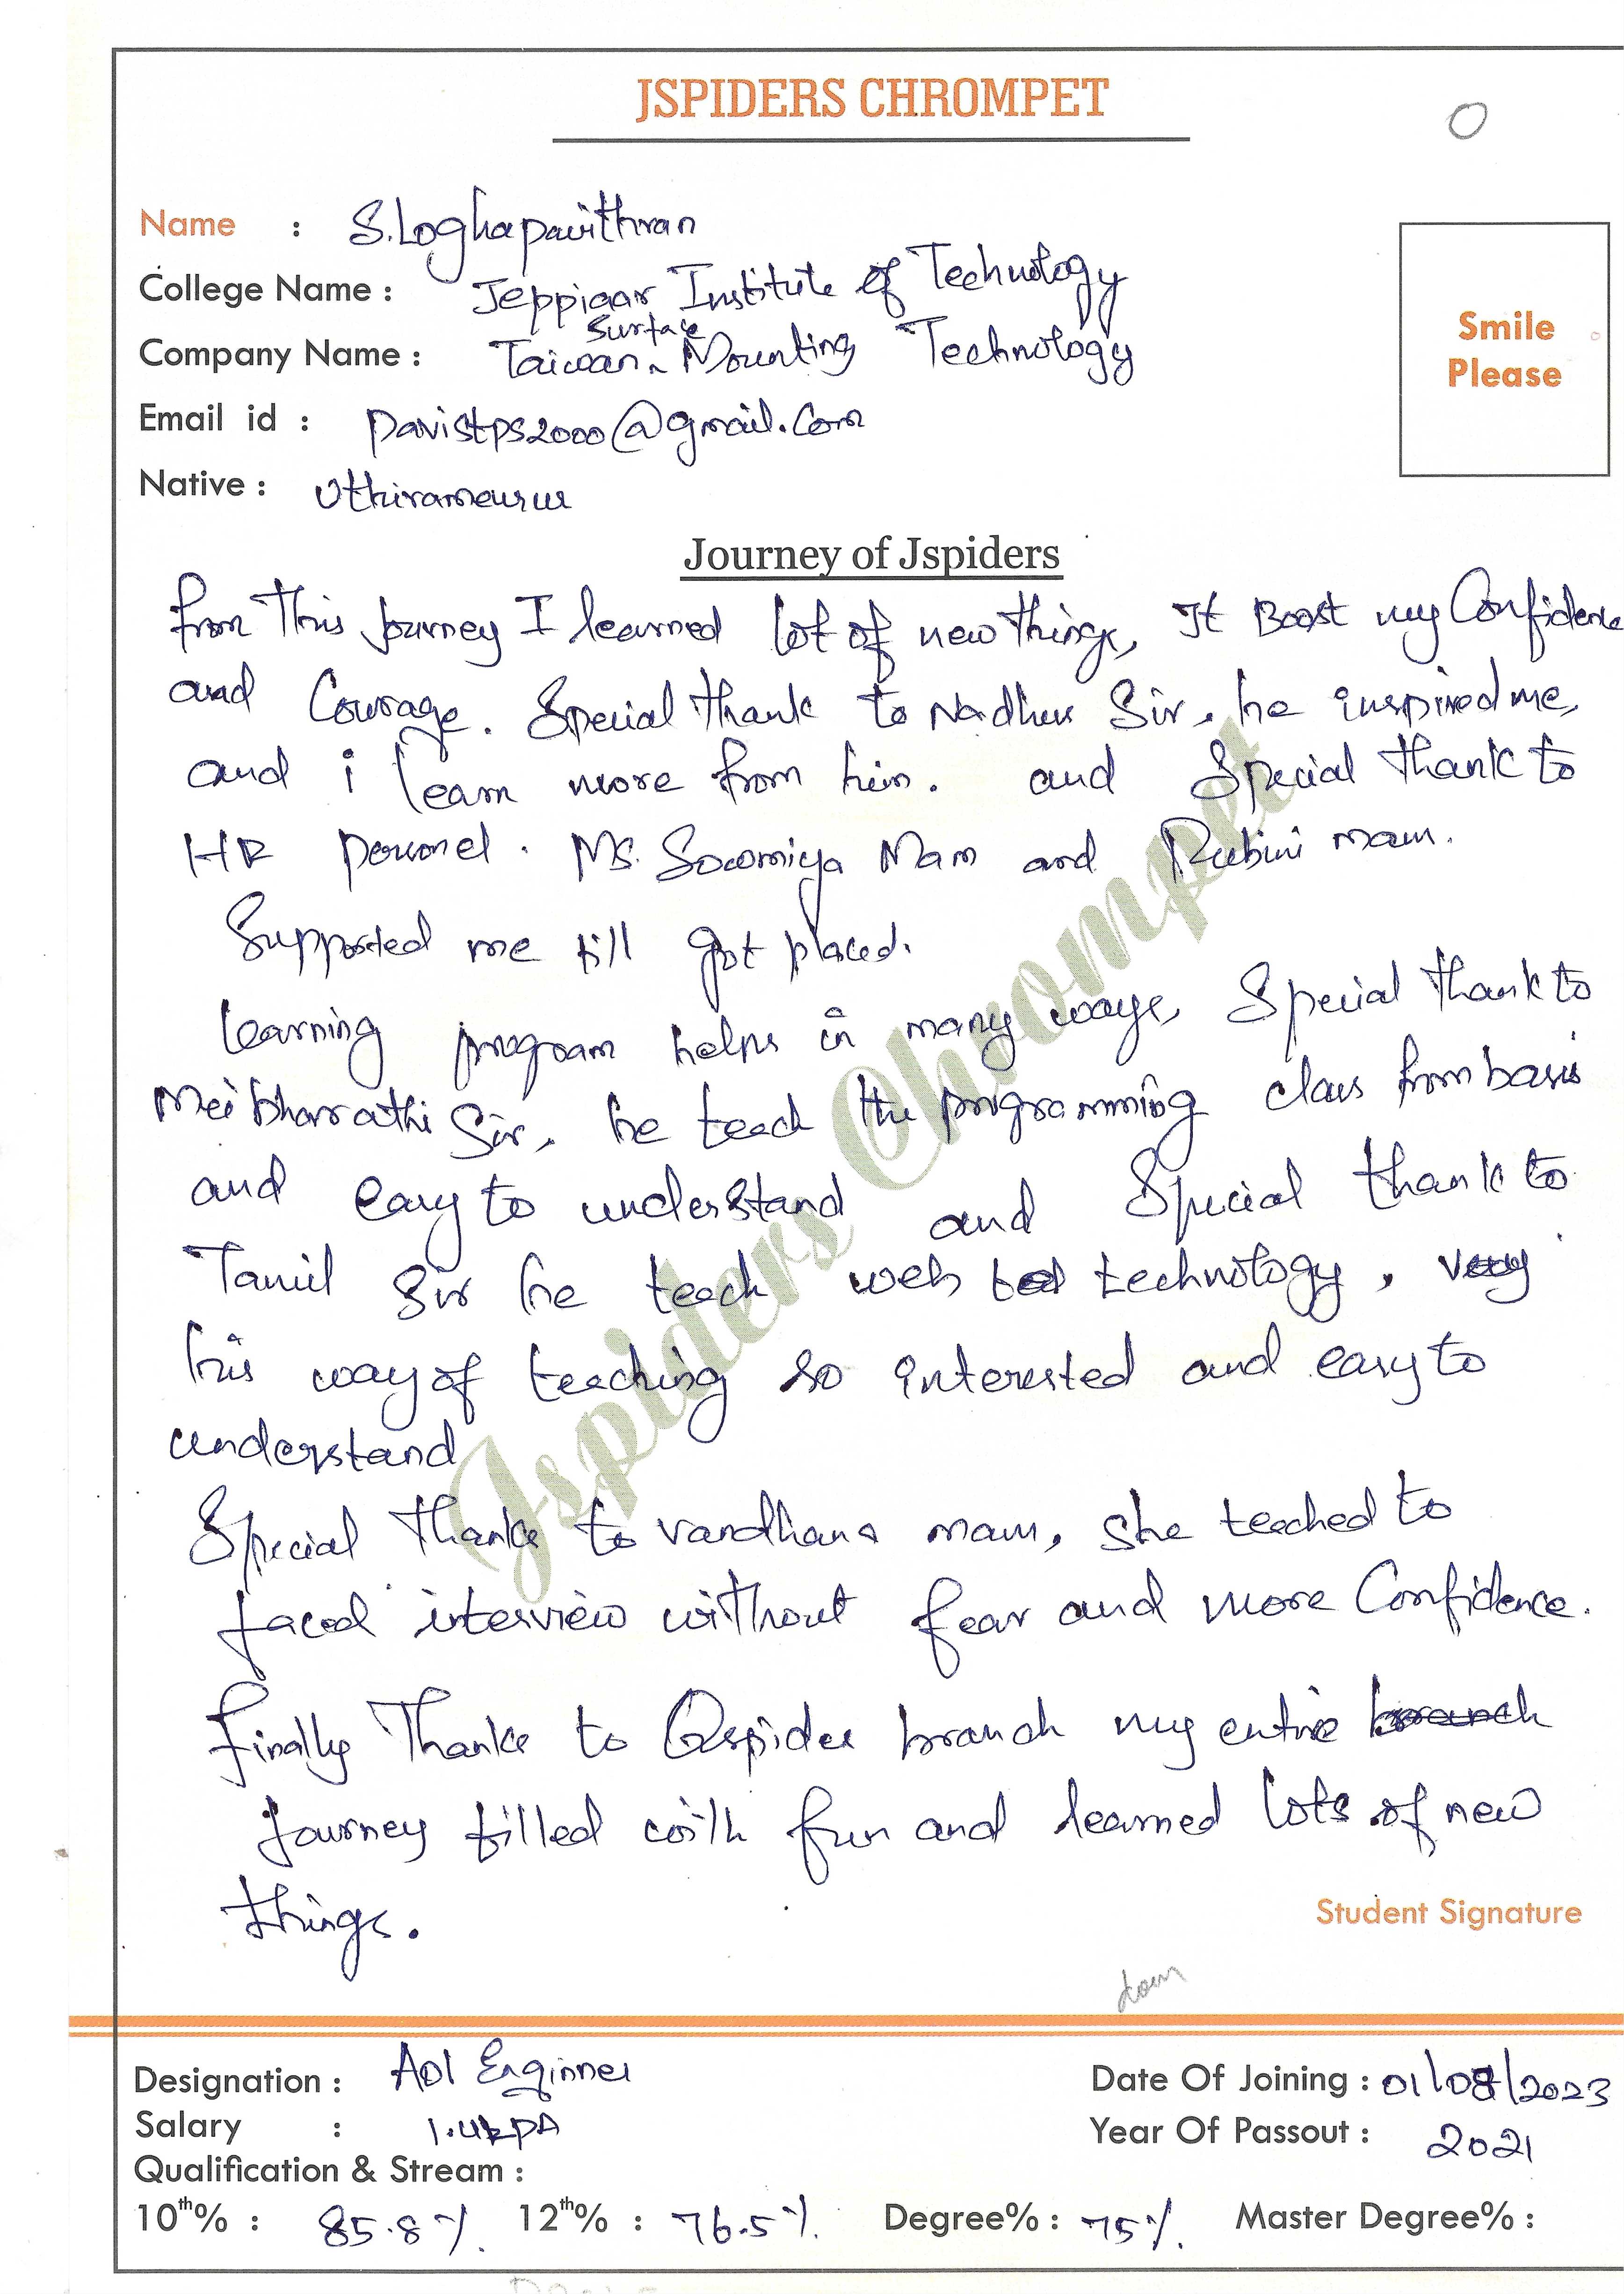 JSPIDERS CHROMPET
Name : S.Loghapavithran
College Name : Jeppiaar Institute of Technology
Surface
Company Name : Taiwan Mounting Technology
Smile
Please
Email id : pavistps2000@gmail.com
Native : Uthiramerur
Journey of Jspiders
from This journey I learned lot of new things, It Boost my Confidence
and Courage. Special thank to Sir, he inspired me,
and i learn more from him. and Special thank to
HR personel. Ms. Sowmiya Mam and Rubini mam.
Supported me till got placed.
learning program helps in many ways, Special thank to
Mei bharathi Sir, he teach the programming class from basis
and easy to understand and Special thank to
Tamil Sir he teach web technology,
his way of teaching so interested and easy to
understand
Special thanks to vandhana mam, she teached to
faced interview without fear and more Confidence.
finally Thanks to Qspider branch my entire branch
journey filled with fun and learned lots of new
things.
Student Signature
Jspiders Chrompet
Designation : AOI Enginner
Date Of Joining : 01/08/2023
Salary :
Year Of Passout : 2021
Qualification & Stream :
10th% : 85.8% 12th% : 76.5% Degree% : 75% Master Degree% :